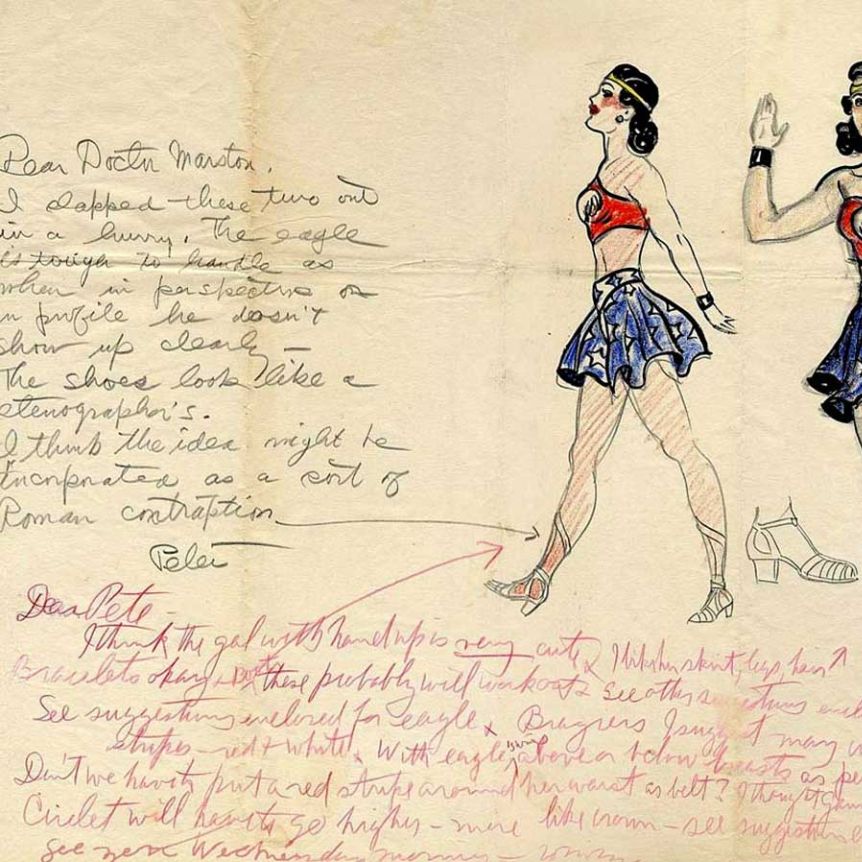 Dear Doctor Marston,
I slapped these two out
in a hurry. The eagle
is tough to handle as
when in perspective or
in profile he doesn't
show up clearly —
The shoes look like a
stenographer's.
I think the idea might be
incorporated as a sort of
Roman contraption
Peter
Dear Pete —
I think the gal with hand up is very cute. I like her skirt, legs, hair
Bracelets okay + Boots these probably will work out. See other suggestions
See suggestions enclosed for eagle.
stripes — red + white. With eagle's wings above or below breasts as
Don't we have to put a red stripe around her waist as belt? I thought
Circlet will have to go higher — more like crown — see suggestions
See you Wednesday morning —